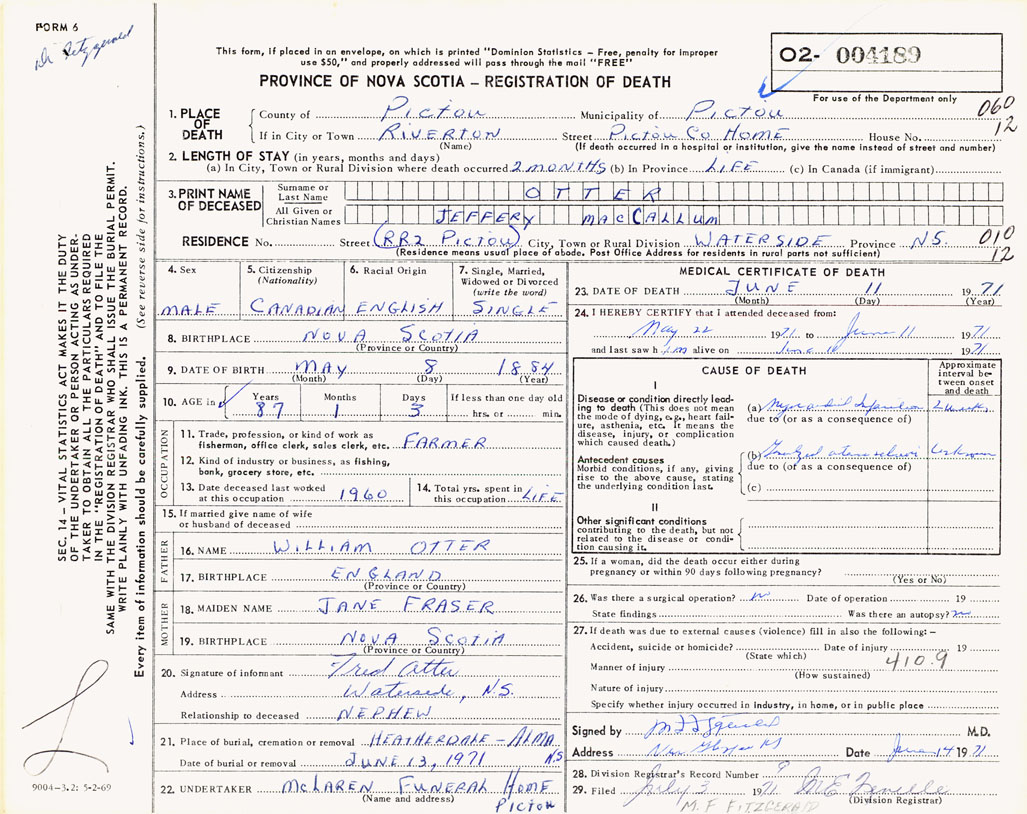 FORM 6
Dr Fitzgerald
This form, if placed in an envelope, on which is printed "Dominion Statistics - Free, penalty for improper
use $50," and properly addressed will pass through the mail "FREE"
PROVINCE OF NOVA SCOTIA - REGISTRATION OF DEATH
02- 004189
For use of the Department only
060
12
1. PLACE OF DEATH
County of Pictou Municipality of Pictou
If in City or Town RIVERTON Street Pictou Co HOME House No.
(Name) (If death occurred in a hospital or institution, give the name instead of street and number)
2. LENGTH OF STAY (in years, months and days)
(a) In City, Town or Rural Division where death occurred 2 MONTHS (b) In Province LIFE (c) In Canada (if immigrant)
3. PRINT NAME OF DECEASED
Surname or Last Name OTTER
All Given or Christian Names JEFFERY MACCALLUM
RESIDENCE No. Street (RR2 PICTOU) City, Town or Rural Division WATERSIDE Province NS. 010
(Residence means usual place of abode. Post Office Address for residents in rural parts not sufficient) 12
4. Sex MALE
5. Citizenship (Nationality) CANADIAN
6. Racial Origin ENGLISH
7. Single, Married, Widowed or Divorced (write the word) SINGLE
8. BIRTHPLACE NOVA SCOTIA
(Province or Country)
9. DATE OF BIRTH MAY 8 1884
(Month) (Day) (Year)
10. AGE in Years 87 Months 1 Days 3 If less than one day old
hrs. or min.
OCCUPATION
11. Trade, profession, or kind of work as
fisherman, office clerk, sales clerk, etc. FARMER
12. Kind of industry or business, as fishing,
bank, grocery store, etc.
13. Date deceased last worked
at this occupation 1960
14. Total yrs. spent in
this occupation LIFE
15. If married give name of wife
or husband of deceased
FATHER
16. NAME WILLIAM OTTER
17. BIRTHPLACE ENGLAND
(Province or Country)
MOTHER
18. MAIDEN NAME JANE FRASER
19. BIRTHPLACE NOVA SCOTIA
(Province or Country)
20. Signature of informant Fred Otter
Address Waterside, N.S.
Relationship to deceased NEPHEW
21. Place of burial, cremation or removal HEATHERDALE - ALMA
Date of burial or removal JUNE 13, 1971 N.S
22. UNDERTAKER McLAREN FUNERAL HOME
(Name and address) PICTOU
MEDICAL CERTIFICATE OF DEATH
23. DATE OF DEATH JUNE 11 1971
(Month) (Day) (Year)
24. I HEREBY CERTIFY that I attended deceased from:
May 22 1971 to June 11 1971
and last saw him alive on June 10 1971
CAUSE OF DEATH
Approximate interval between onset and death
I
Disease or condition directly leading to death (This does not mean the mode of dying, e.g., heart failure, asthenia, etc. It means the disease, injury, or complication which caused death.)
(a) Myocardial Infarction 2 weeks
due to (or as a consequence of)
Antecedent causes
Morbid conditions, if any, giving rise to the above cause, stating the underlying condition last.
(b) Unknown
due to (or as a consequence of)
(c)
II
Other significant conditions
contributing to the death, but not related to the disease or condition causing it.
25. If a woman, did the death occur either during
pregnancy or within 90 days following pregnancy?
(Yes or No)
26. Was there a surgical operation? no Date of operation 19
State findings Was there an autopsy? no
27. If death was due to external causes (violence) fill in also the following: -
Accident, suicide or homicide? Date of injury 19
(State which) 410.9
Manner of injury
(How sustained)
Nature of injury
Specify whether injury occurred in industry, in home, or in public place
Signed by M F Fitzgerald M.D.
Address New Glasgow NS Date June 14 1971
28. Division Registrar's Record Number 9
29. Filed July 3 1971
(Division Registrar)
M. F FITZGERALD
SEC. 14 - VITAL STATISTICS ACT MAKES IT THE DUTY
OF THE UNDERTAKER OR PERSON ACTING AS UNDER-
TAKER TO OBTAIN ALL THE PARTICULARS REQUIRED
IN THE "REGISTRATION OF DEATH" AND TO FILE THE
SAME WITH THE DIVISION REGISTRAR WHO SHALL ISSUE THE BURIAL PERMIT.
WRITE PLAINLY WITH UNFADING INK. THIS IS A PERMANENT RECORD.
Every item of information should be carefully supplied. (See reverse side for instructions.)
9004-3.2: 5-2-69